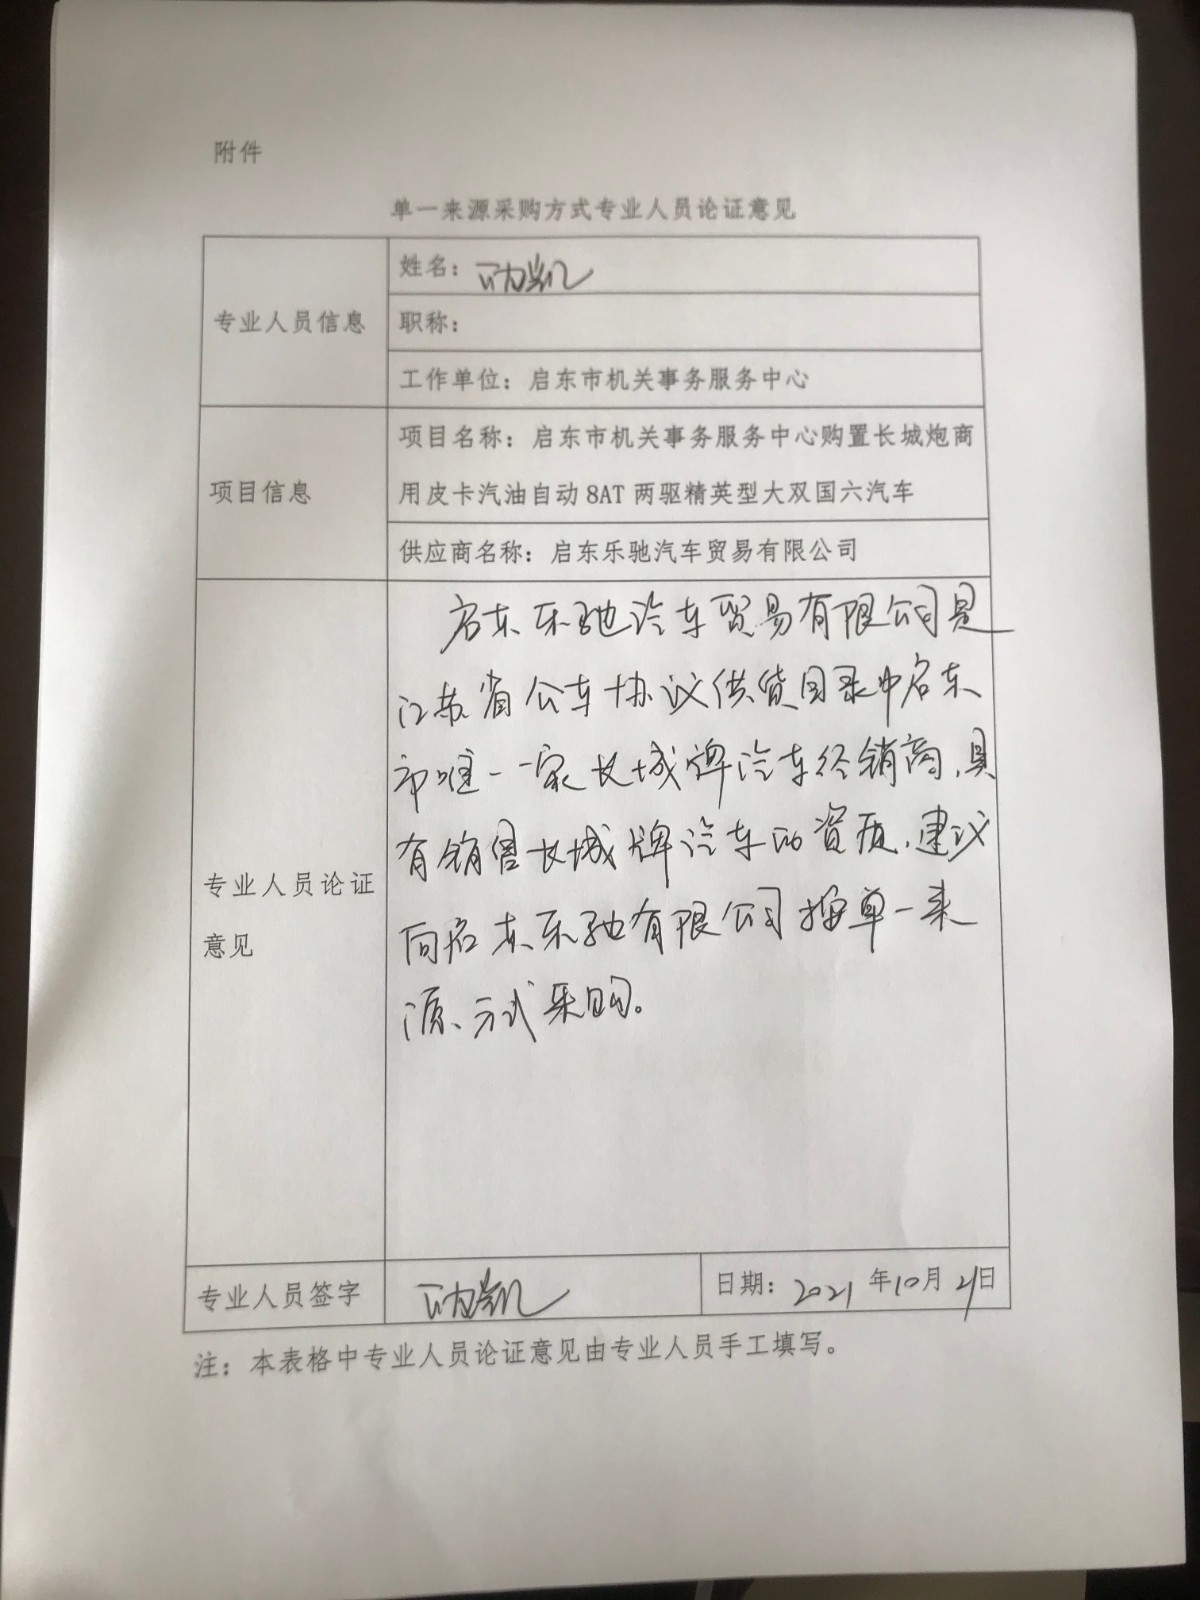 附件
单一来源采购方式专业人员论证意见
专业人员信息
姓名：
职称：
工作单位：启东市机关事务服务中心
项目信息
项目名称：启东市机关事务服务中心购置长城炮商
用皮卡汽油自动8AT两驱精英型大双国六汽车
供应商名称：启东乐驰汽车贸易有限公司
专业人员论证
意见
启东乐驰汽车贸易有限公司是
江苏省公车协议供货目录中启东
市唯一一家长城牌汽车经销商，具
有销售长城牌汽车的资质，建议
向启东乐驰有限公司按单一来
源、方式采购。
专业人员签字
日期：2021年10月21日
注：本表格中专业人员论证意见由专业人员手工填写。